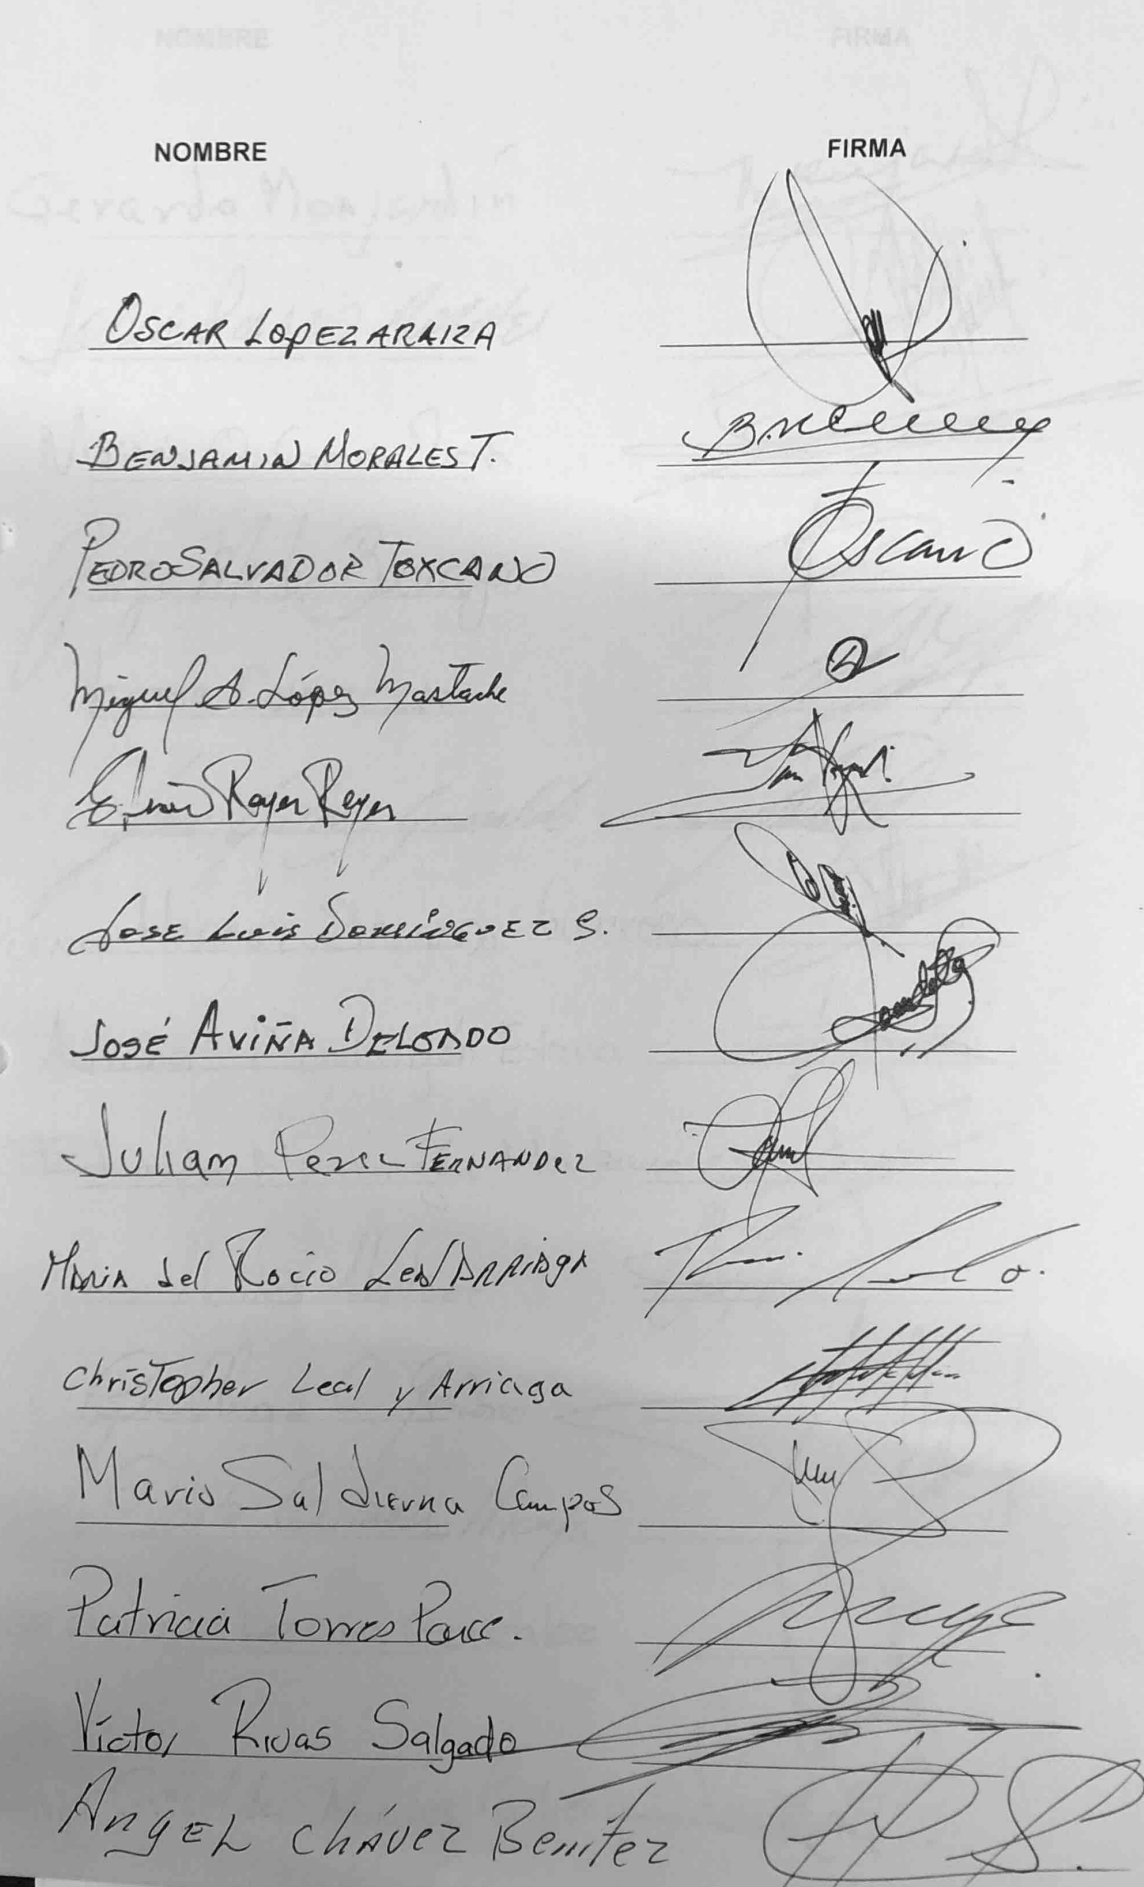 NOMBRE FIRMA
OSCAR LOPEZ ARAIZA
BENJAMIN MORALES T.
PEDRO SALVADOR TOXCANO
Miguel A. López Mastache
Reyes Reyes
JOSE LUIS DOMÍNGUEZ S.
JOSÉ AVIÑA DELGADO
Julian Perez FERNANDEZ
MARIA del Rocio Leal ARRIAGA
Christopher Leal y Arriaga
Mario Saldierna Campos
Patricia Torres Ponce.
Víctor Rivas Salgado
ANGEL CHÁVEZ Benítez